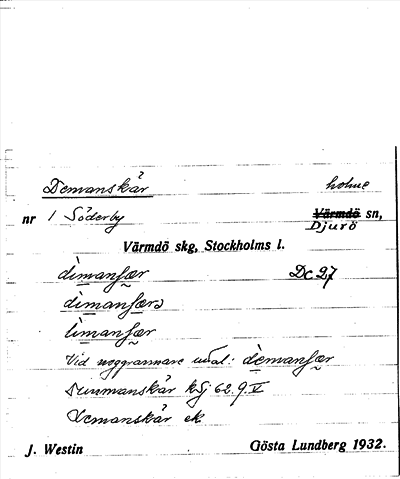 Demanskär holme
nr 1 Söderby Värmdö sn,
Djurö
Värmdö skg, Stockholms l.
dìmanʃær Dc 27
dìmanʃærs
lìmanʃær
Vid noggrannare uttal: dèmanʃær
kSj 62.9.V
Demanskär ek
J. Westin Gösta Lundberg 1932.